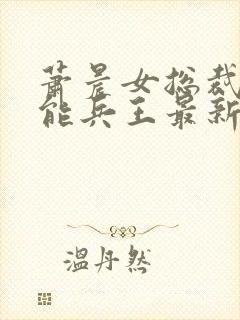 萧晨女总裁
能兵王最新
温丹然